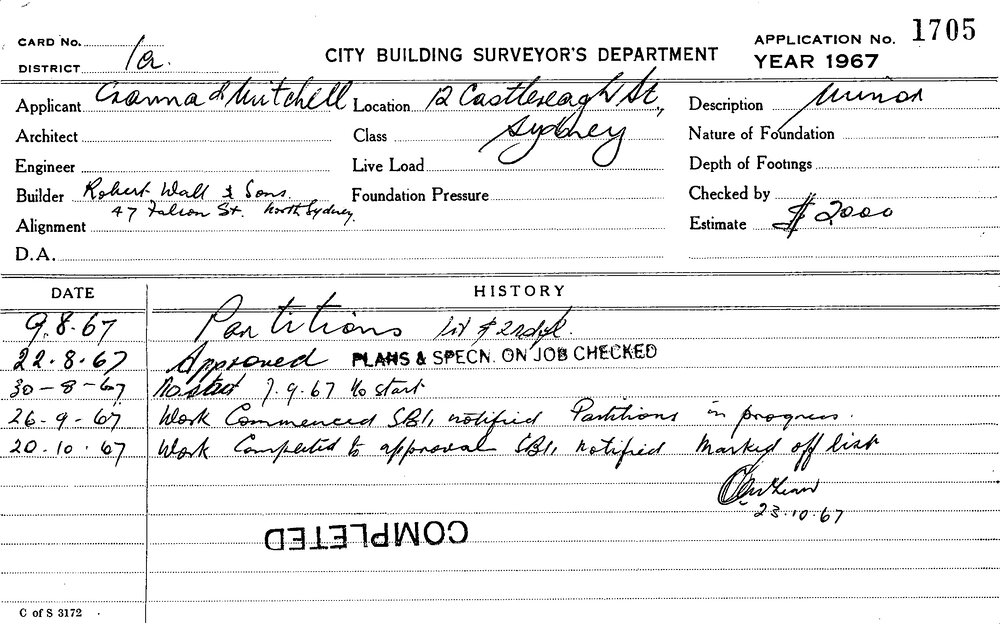 CARD No.
DISTRICT 1a.
CITY BUILDING SURVEYOR'S DEPARTMENT
APPLICATION No. 1705
YEAR 1967
Applicant Cranna & Mitchell
Location 12 Castlereagh St,
Sydney
Description Minor
Architect
Class
Nature of Foundation
Engineer
Live Load
Depth of Footings
Builder Robert Wall & Sons
47 Falcon St. North Sydney
Foundation Pressure
Checked by
Alignment
Estimate $ 2000
D.A.
DATE HISTORY
9.8.67 Partitions 1st & 2nd fl.
22.8.67 Approved PLANS & SPECN. ON JOB CHECKED
30-8-67 No start 7.9.67 No start
26-9-67 Work Commenced SBI, notified Partitions in progress.
20.10.67 Work Completed to approval SBI, notified Marked off list
23.10.67
COMPLETED
C of S 3172